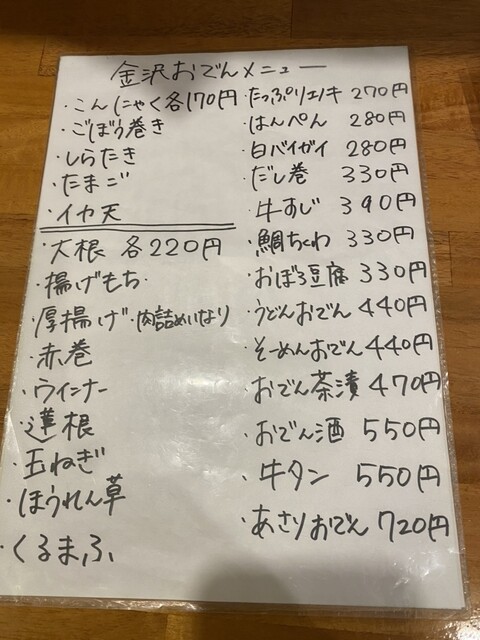 金沢おでんメニュー
・こんにゃく各170円
・ごぼう巻き
・しらたき
・たまご
・イカ天
・大根 各220円
・揚げもち
・厚揚げ ・肉詰めいなり
・赤巻
・ウインナー
・蓮根
・玉ねぎ
・ほうれん草
・くるまふ
・たっぷりエノキ 270円
・はんぺん 280円
・白バイガイ 280円
・だし巻 330円
・牛すじ 390円
・鯛ちくわ 330円
・おぼろ豆腐 330円
・うどんおでん 440円
・そーめんおでん 440円
・おでん茶漬 470円
・おでん酒 550円
・牛タン 550円
・あさりおでん 720円